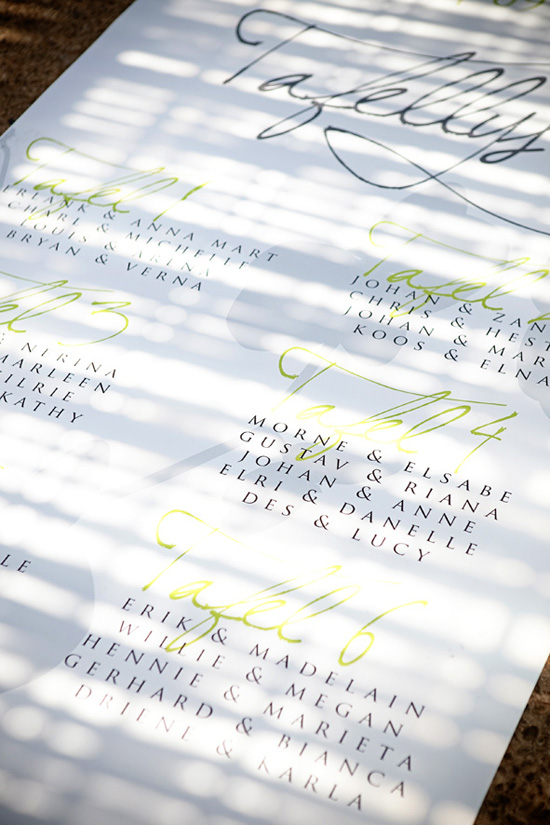 Tafellys
Tafel 1
FRANK & ANNA MART
CHARL & MICHELLE
LOUIS & KARINA
BRYAN & VERNA
Tafel 2
JOHAN & ZAN
CHRIS & HEST
JOHAN & MAR
KOOS & ELNA
Tafel 3
& NIRINA
MARLEEN
WILRIE
KATHY
Tafel 4
MORNE & ELSABE
GUSTAV & RIANA
JOHAN & ANNE
ELRI & DANELLE
DES & LUCY
LE
Tafel 6
ERIK & MADELAIN
WILLIE & MEGAN
HENNIE & MARIETA
GERHARD & BIANCA
DRIENE & KARLA